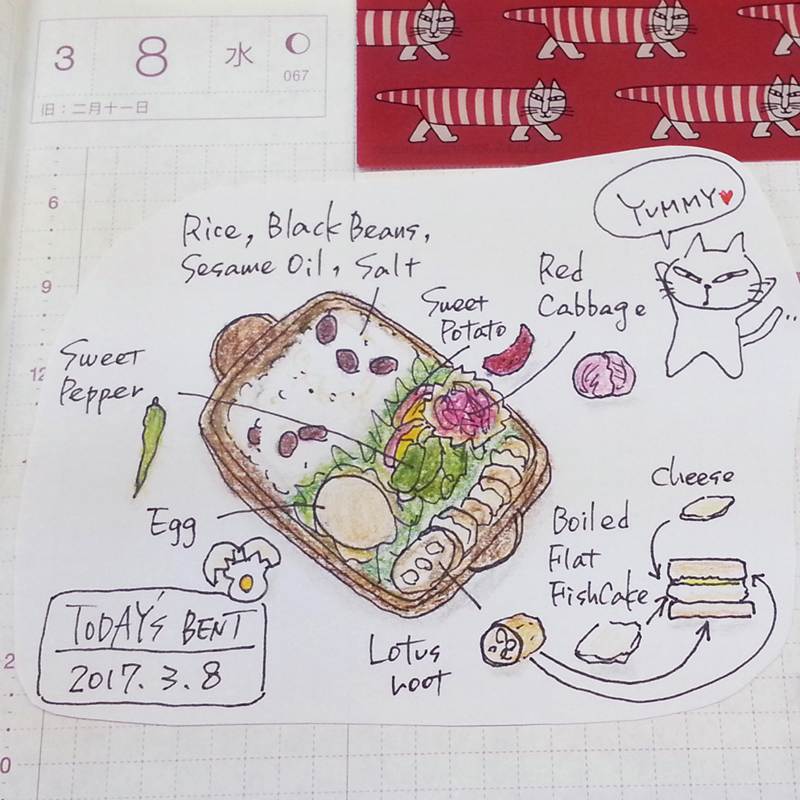 3 8 水
067
旧：二月十一日
6
9
12
2
0
YUMMY♥
Rice, Black Beans,
Sesame Oil, Salt
Sweet
Potato
Red
Cabbage
Sweet
Pepper
Egg
Cheese
Boiled
Flat
FishCake
Lotus
root
TODAY'S BENT
2017.3.8